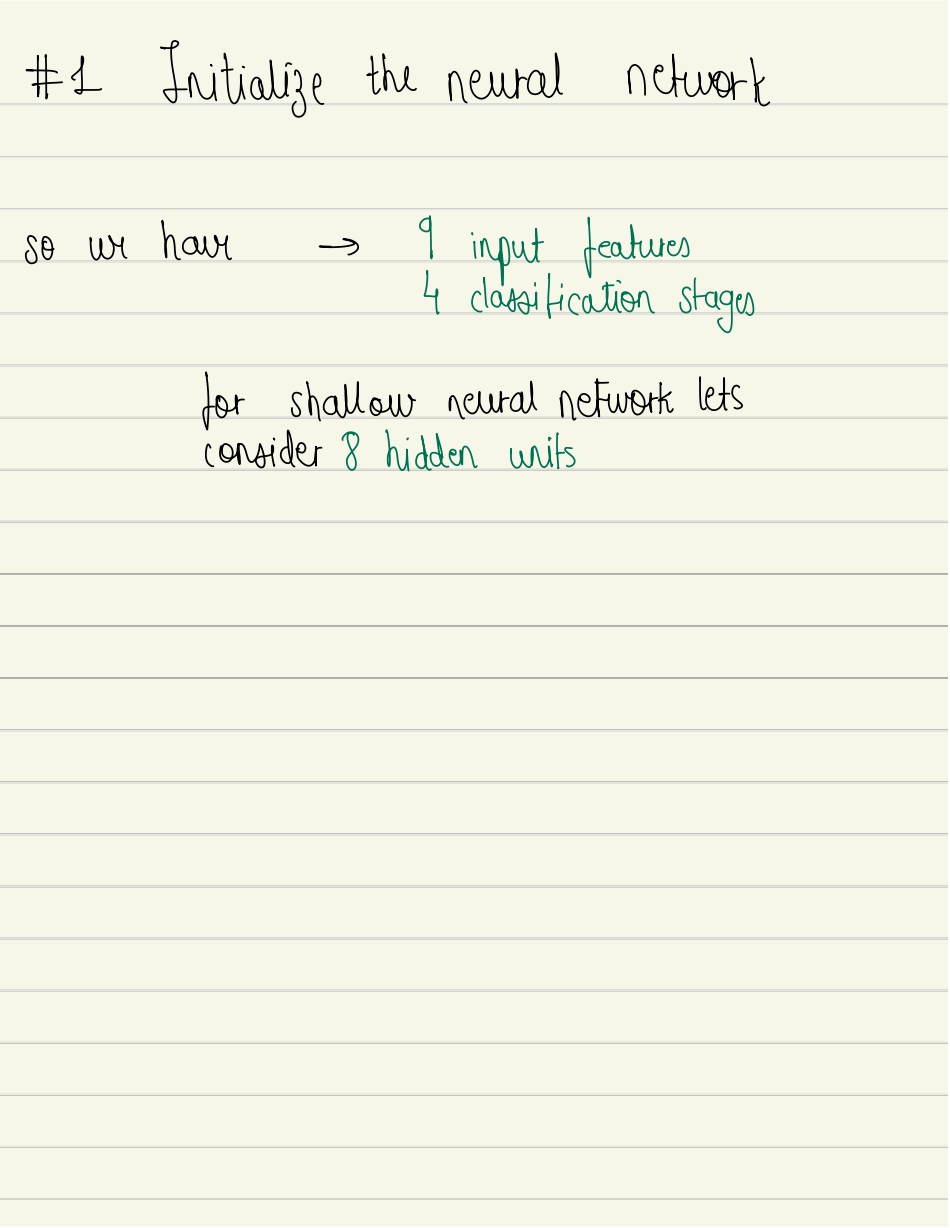 #1 Initialize the neural network
so we have → 9 input features
4 classification stages
for shallow neural network lets
consider 8 hidden units